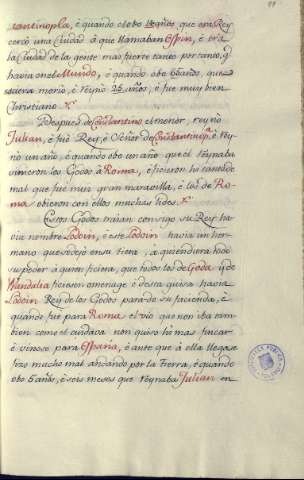 tantinopla, é quando obo 14 años, que era Rey
cercó una Ciudad á que llamaban Espin, é era
la Ciudad de la gente mas fuerte tanto por tanto, q̃
havia en el Mundo, é quando obo 65 años, que
murió, é reynó 25 años, é fue muy bien
Christiano
Despues de Constantino el menor, reynó
Julian, é fué Rey, é Señor de Constantinopª é rey-
nó un año, é quando obo un año que el reynaba
vinieron los Godos á Roma, é ficieron hi tanto de
mal que fué muy gran maravilla, é los de Ro-
ma obieron con ellos muchas lides
Estos Godos traian consigo su Rey ha-
via nombre Lodoin, é este Lodoin havia un her-
mano que dejó en su tierra, á quien diera todo
su poder á quien ficiera, que todos los de Goda y de
Wandalia ficiesen omenage é desta guisa havia
Lodoin Rey de los Godos parado su facienda, é
quando fué para Roma el vio que non iba tam-
bien como el cuidava non quiso hi mas fincar
é vinose para España, é ante que á ella llegase
fizo mucho mal andando por la tierra, é quando
obo 5 años, é seis meses que reynaba Julian en